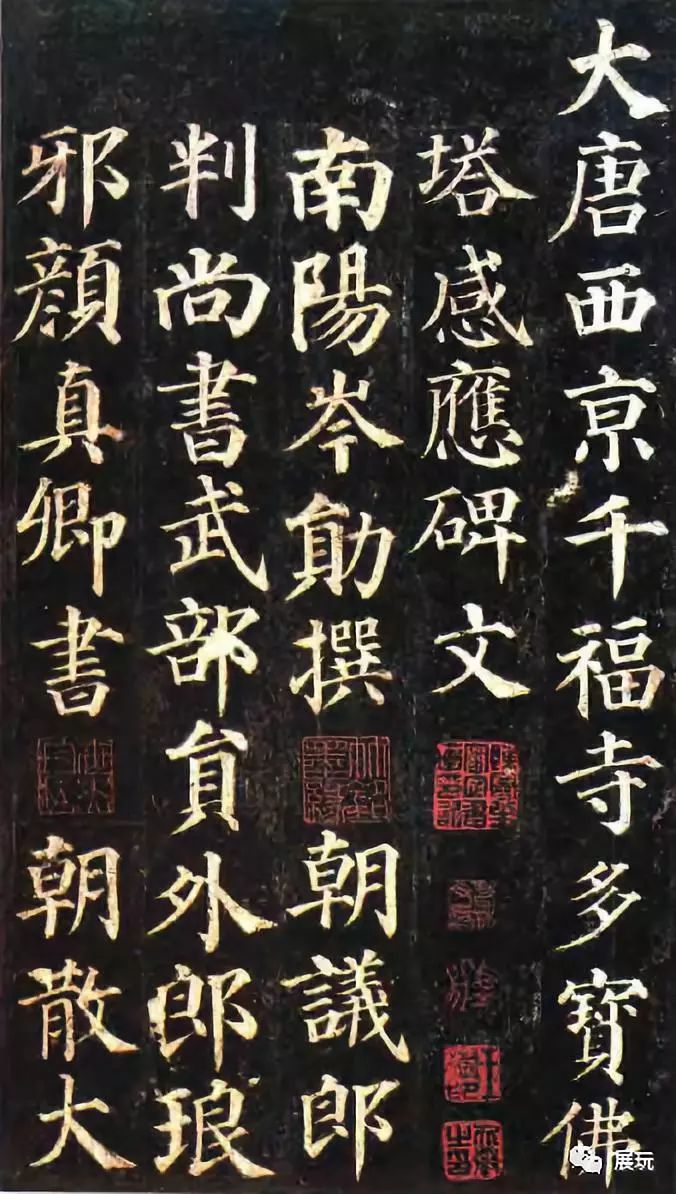 大唐西京千福寺多寶佛
塔感應碑文
南陽岑勛撰 朝議郎
判尚書武部員外郎琅
邪顏真卿書 朝散大
展玩